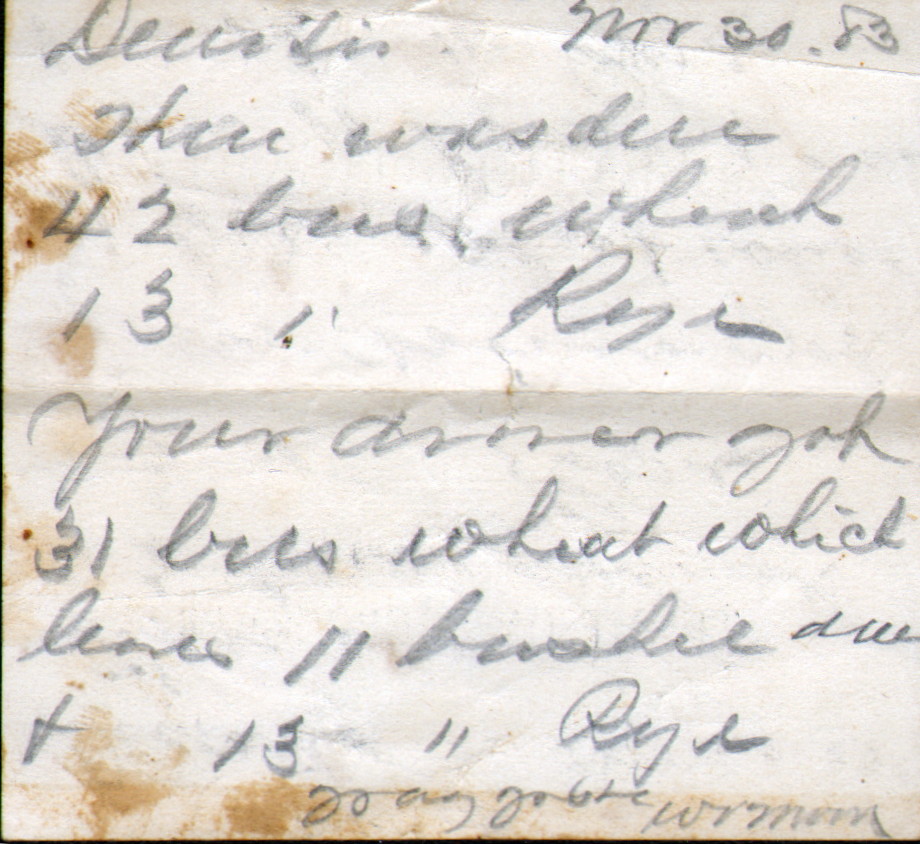 Dear Sir. Nov 30. 83
There was due
42 bus. wheat
13 " Rye
Your driver got
31 bus wheat which
leaves 11 bushel due
+ 13 " Rye